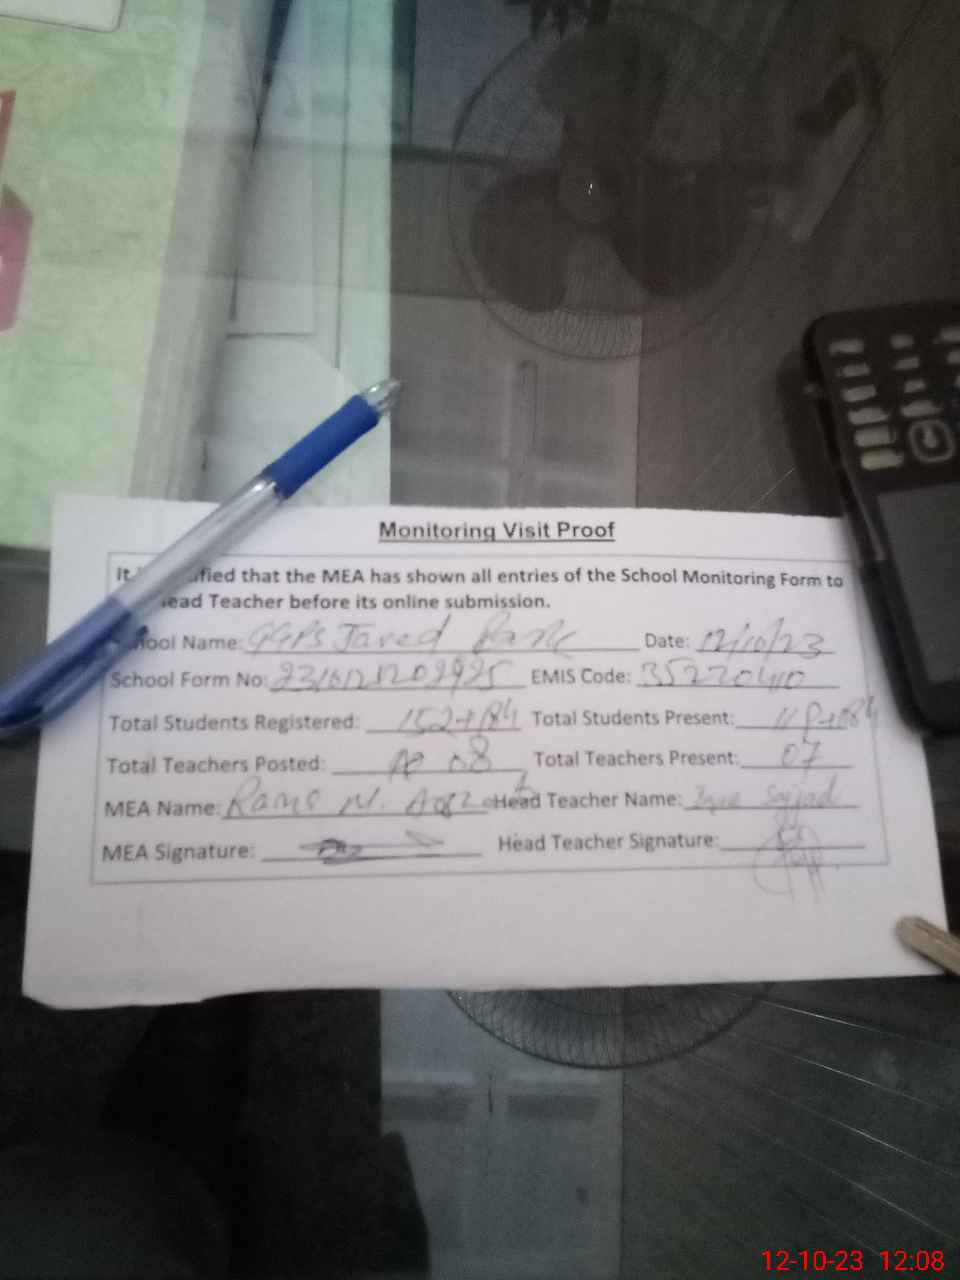 Monitoring Visit Proof
It fied that the MEA has shown all entries of the School Monitoring Form to
ead Teacher before its online submission.
ool Name: GGPS Javed Park Date: 12/10/23
School Form No: EMIS Code: 35220410
Total Students Registered: 152+184 Total Students Present:
Total Teachers Posted: 08 Total Teachers Present: 07
MEA Name: Rana N. Head Teacher Name: Sajjad
MEA Signature: Head Teacher Signature:
12-10-23 12:08